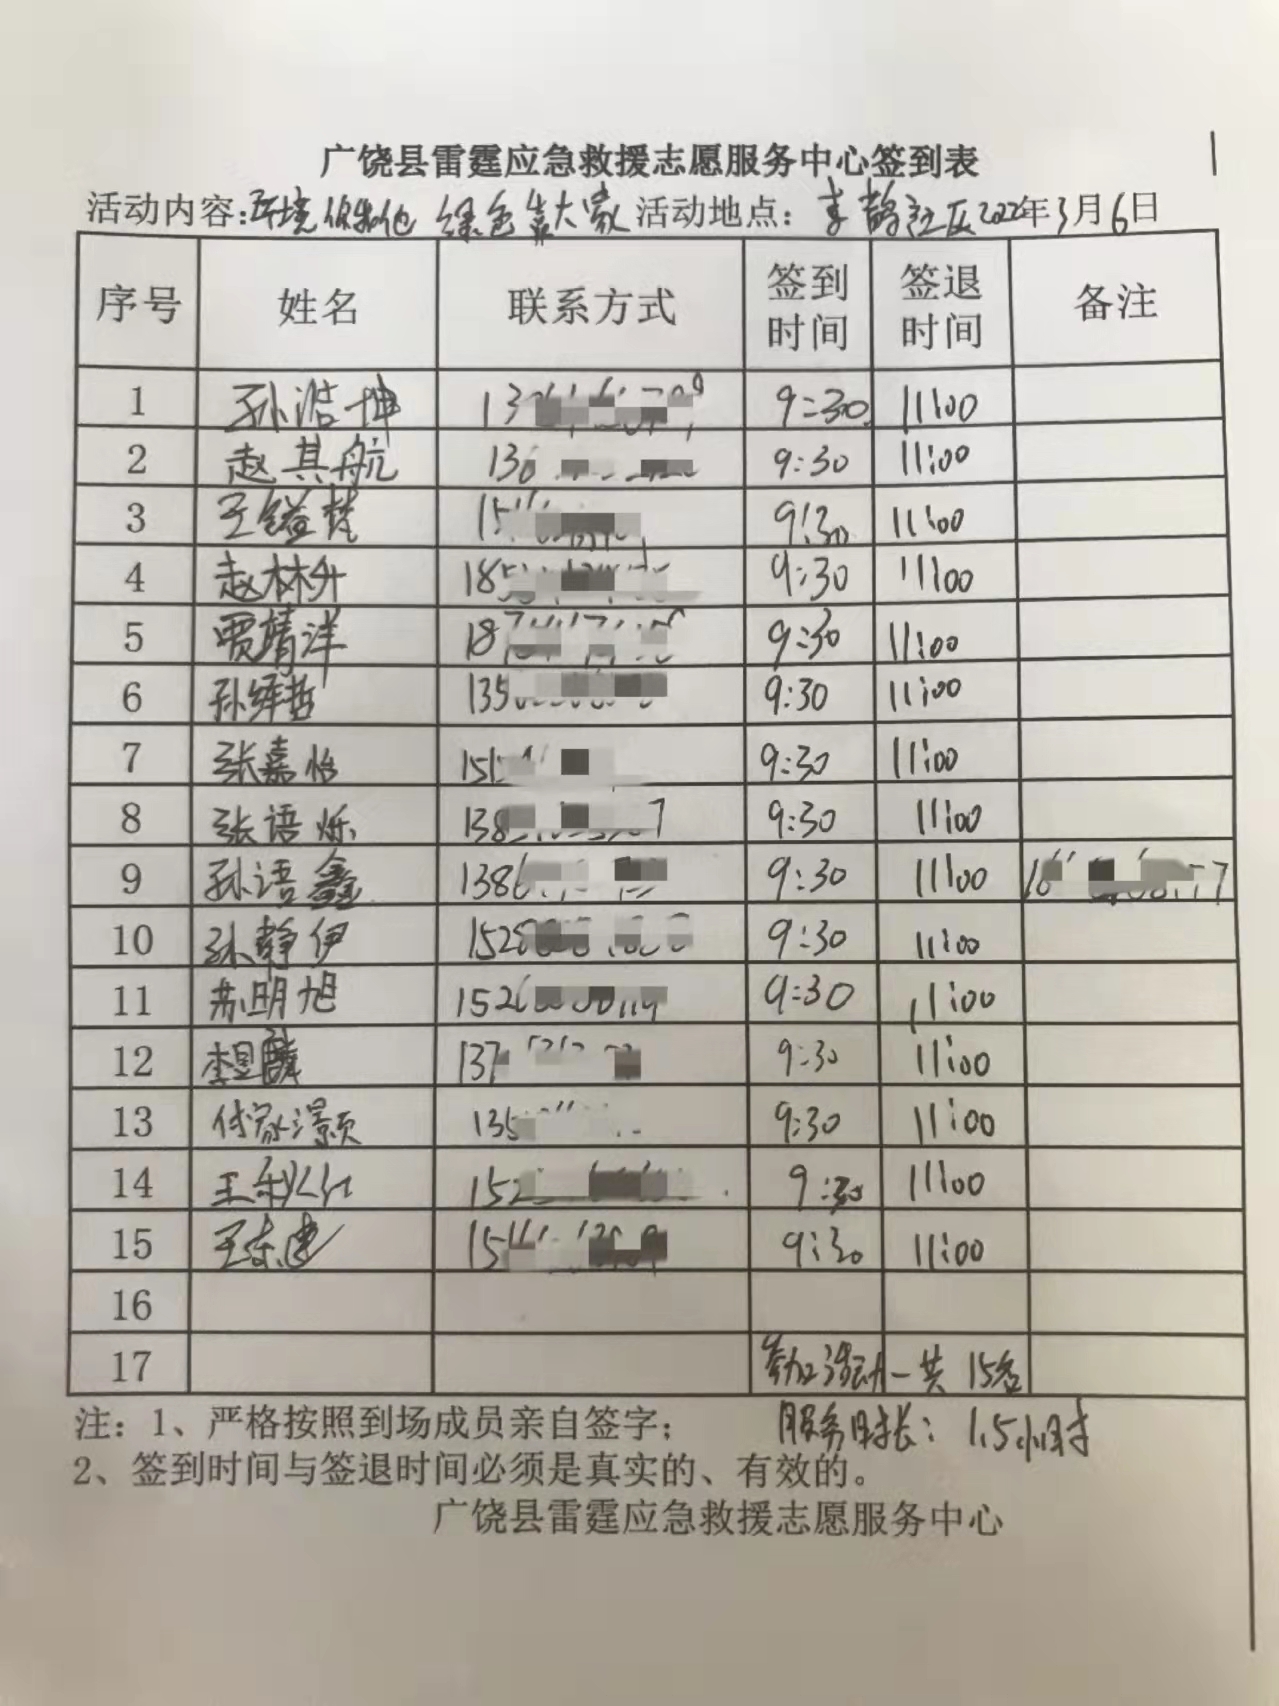 广饶县雷霆应急救援志愿服务中心签到表
活动内容：环境保护 绿色靠大家 活动地点：李鹊社区 2022年3月6日
序号 姓名 联系方式 签到时间 签退时间 备注
1 孙浩坤 9:30 11:00
2 赵其航 9:30 11:00
3 王镒梵 9:30 11:00
4 赵林升 9:30 11:00
5 贾靖洋 9:30 11:00
6 孙绎哲 9:30 11:00
7 张嘉怡 9:30 11:00
8 张语烁 9:30 11:00
9 孙语鑫 9:30 11:00
10 孙静伊 9:30 11:00
11 苏明旭 9:30 11:00
12 李昱麟 9:30 11:00
13 付家灏 9:30 11:00
14 王 9:30 11:00
15 王东建 9:30 11:00
16
17 参加活动一共15名
注：1、严格按照到场成员亲自签字； 服务时长：1.5小时
2、签到时间与签退时间必须是真实的、有效的。
广饶县雷霆应急救援志愿服务中心